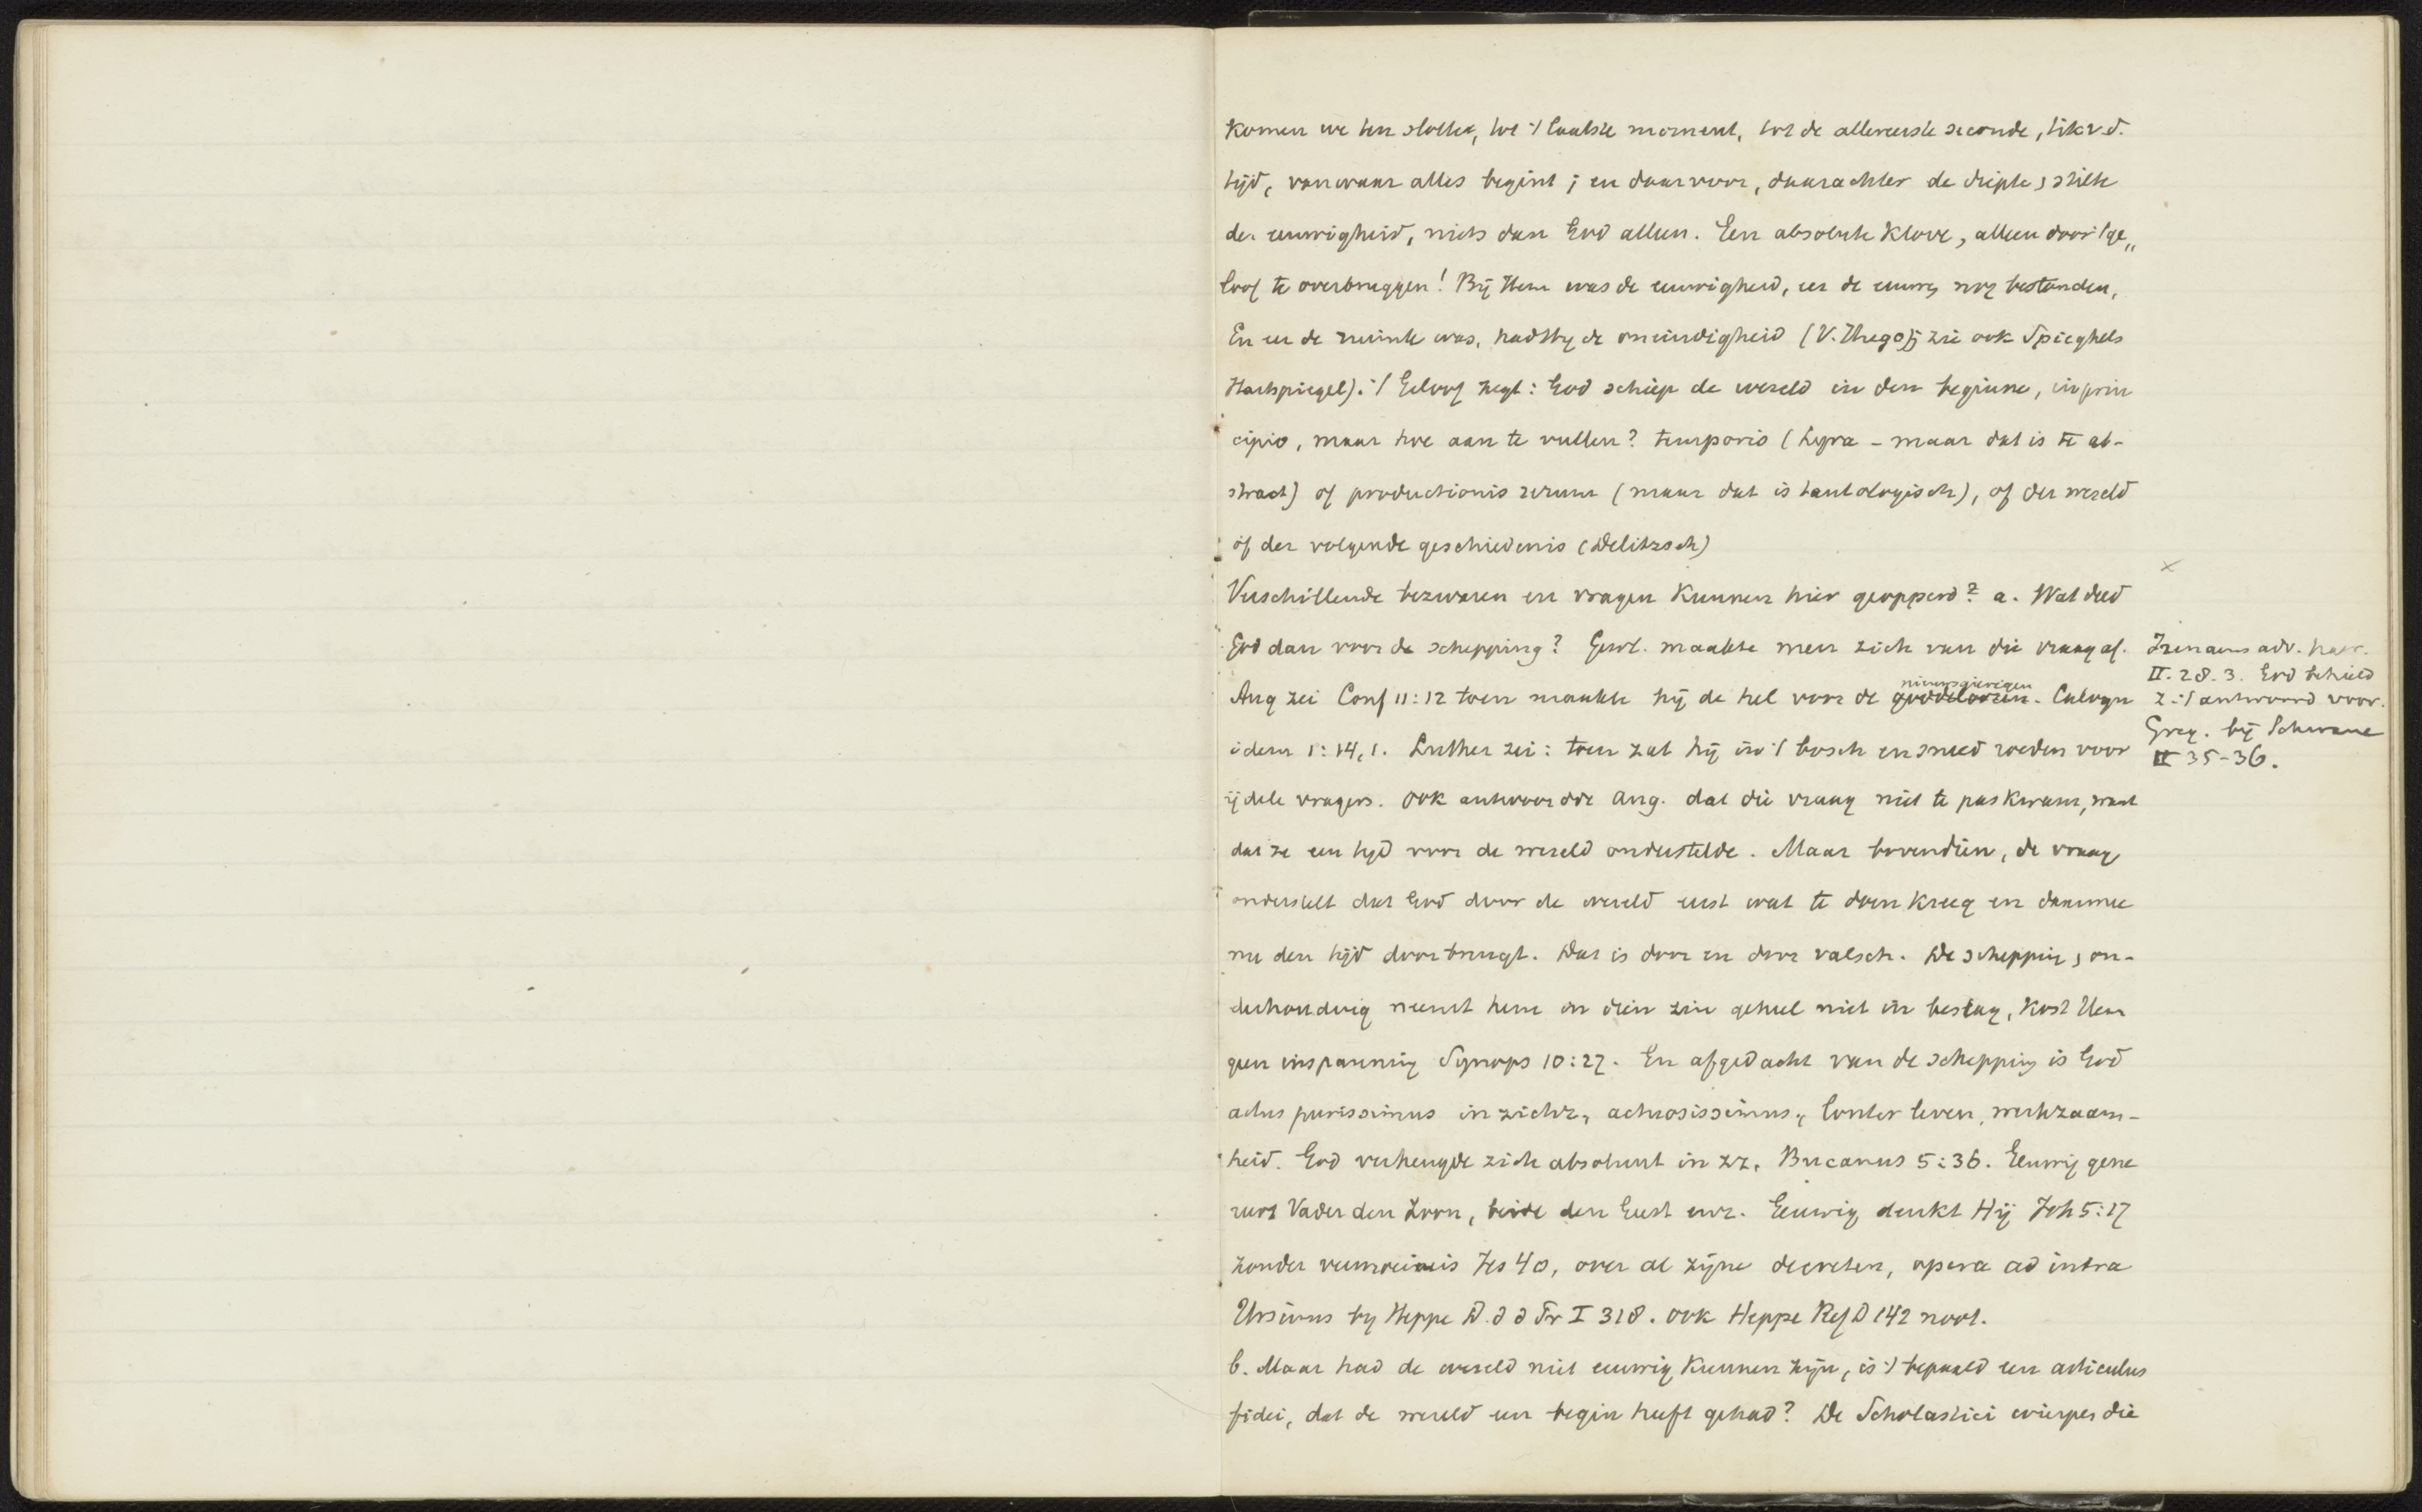 komen we ten slotte, tot 't laatste moment, tot de allereerste seconde, tik v.d.
tijd, vanwaar alles begint; en daarvoor, daarachter de diepte, stilte
der eeuwigheid, niets dan God alleen. Een absolute klove, alleen door 't ge„
loof te overbruggen! Bij Hem was de eeuwigheid, eer de eeuwen nog bestonden,
En eer de ruimte was, had Hij de oneindigheid (V. Hugo); zie ook Spieghels
Hartspiegel). 't Geloof zegt: God schiep de wereld in den beginne, in prin
cipio, maar hoe aan te vullen? temporis (Lyra - maar dat is te ab-
stract) of productionis rerum (maar dat is tautologisch), of der wereld
òf der volgende geschiedenis (Delitzsch)
Verschillende bezwaren en vragen kunnen hier geopperd: a. Wat deed
God dan voor de schepping? Gewl. maakte men zich van die vraag af.
Aug zei Conf 11:12 toen maakte hij de hel voor de goddeloozen nieuwsgierigen. Calvyn
idem 1:14,1. Luther zei: toen zat hij in 't bosch en sneed roeden voor
ijdele vragers. Ook antwoordde Aug. dat die vraag niet te pas kwam, want
dat ze een tijd voor de wereld onderstelde. Maar bovendien, de vraag
onderstelt dat God door de wereld eerst wat te doen kreeg en daarmee
nu den tijd doorbrengt. Dat is door en door valsch. De schepping, on-
derhouding neemt hem in dien zin geheel niet in beslag, kost Hem
geen inspanning Synops 10:27. En afgedacht van de schepping is God
actus purissimus in zichz, actuosissimus, louter leven, werkzaam-
heid. God verheugde zich absoluut in zz, Bucanus 5:36. Eeuwig gene
reert Vader den Zoon, beide den Geest enz. Eeuwig denkt Hij Joh 5:17
zonder vermoeienis Jes 40, over al zijne decreten, opera ad intra
Ursinus by Heppe D. d d Pr I 318. ook Heppe Ref D 142 noot.
b. Maar had de wereld niet eeuwig kunnen zijn, is 't bepaald een articulus
fidei, dat de wereld een begin heeft gehad? De Scholastici wierpen die
×
Irenaeus adv. haer.
II. 28. 3. God behield
z. 't antwoord voor.
Greg. bij Schwane
II 35-36.